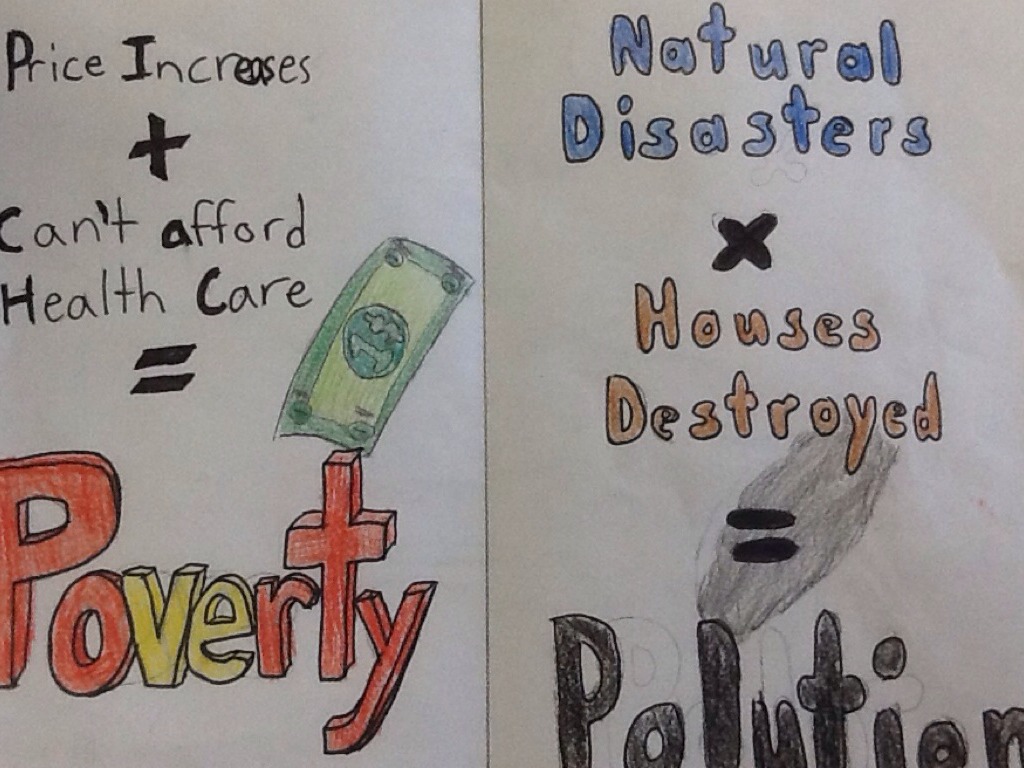 Price Increases
+
Can't afford
Health Care
=
Poverty
Natural
Disasters
x
Houses
Destroyed
=
Polution